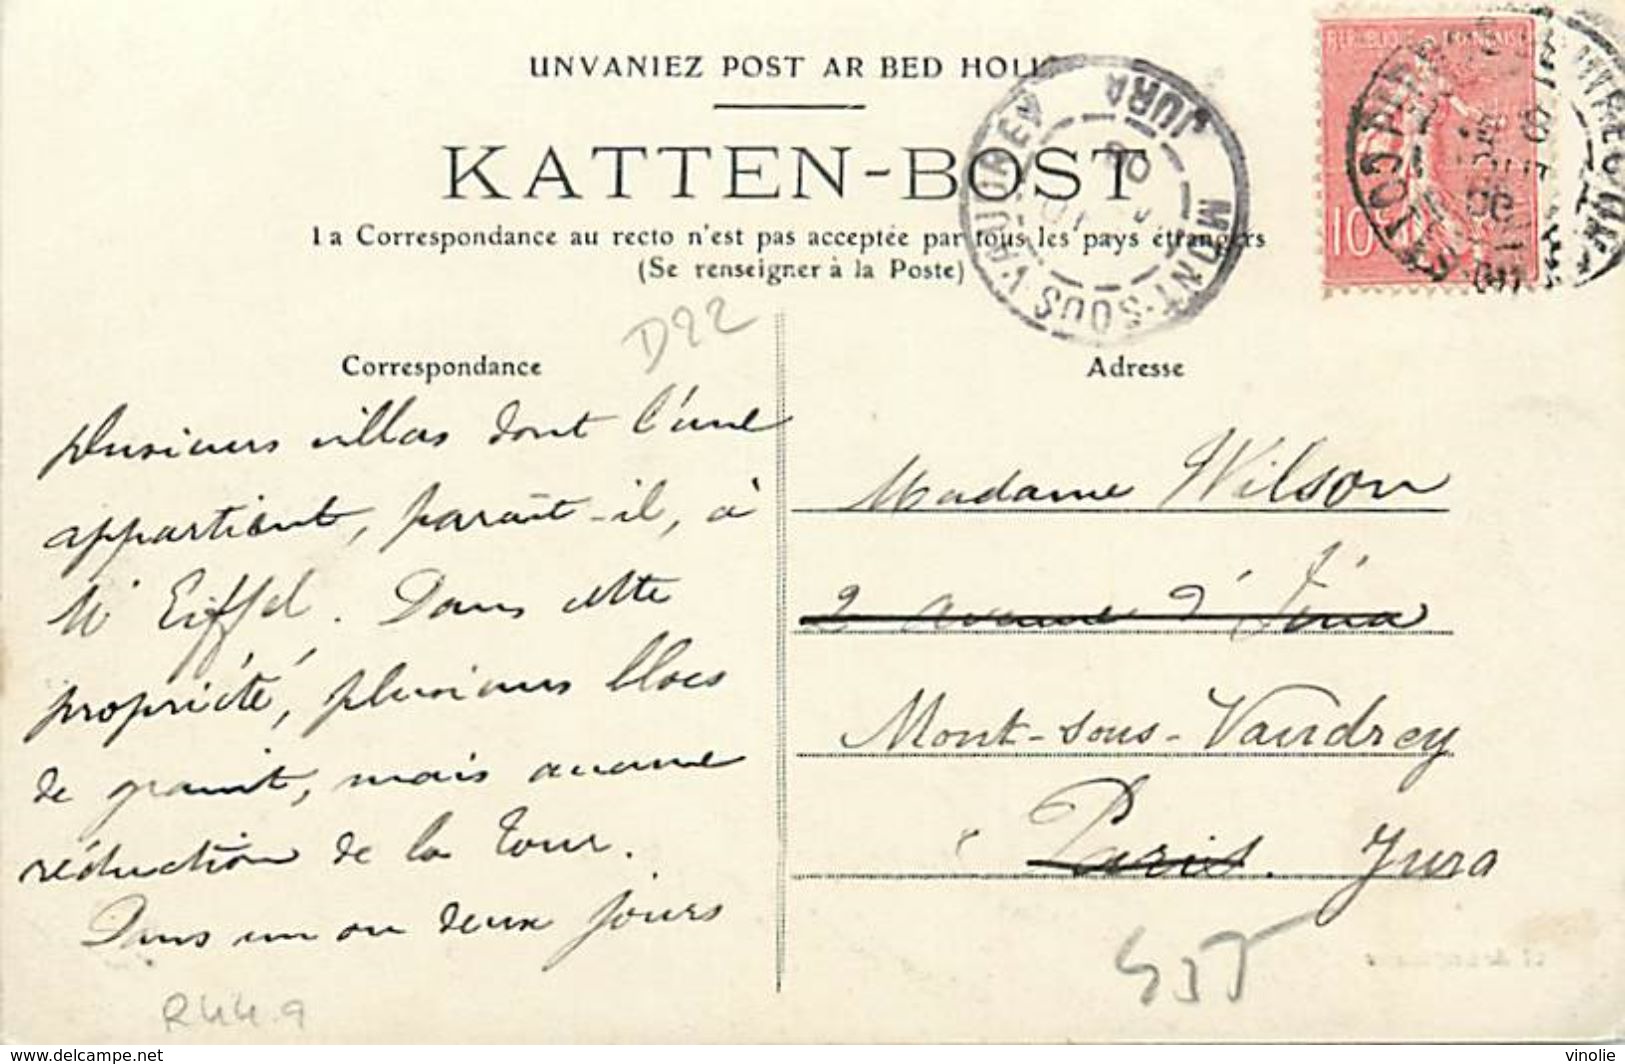 UNVANIEZ POST AR BED HOLL
KATTEN-BOST
La Correspondance au recto n'est pas acceptée par tous les pays étrangers
(Se renseigner à la Poste)
MONT-SOUS-VAUDREY
JURA
REPUBLIQUE FRANÇAISE
10
D22
Correspondance
plusieurs villas dont l'une
appartient, paraît-il, à
Mr Eiffel. Dans cette
propriété, plusieurs blocs
de granit, mais aucune
réduction de la Tour.
Dans un ou deux jours
R44.9
Adresse
Madame Wilson
2 avenue d'Iéna
Mont-sous-Vaudrey
Paris. Jura
https://www.delcampe.net
vinolie